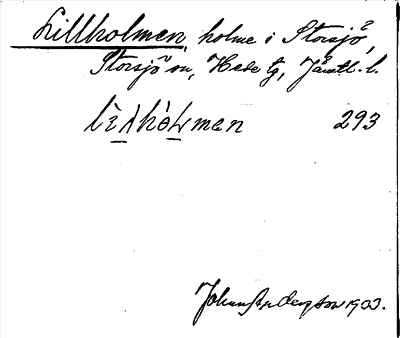 Lillholmen, holme i Storsjö,
Storsjö sn, Hede tg, Jämtl. l.
lìλhòɯmen 293
Johan Anderson 1933.